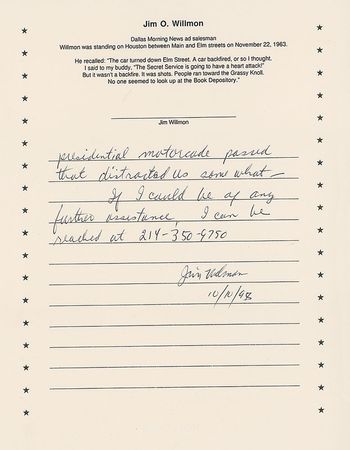 Jim O. Willmon
Dallas Morning News ad salesman
Willmon was standing on Houston between Main and Elm streets on November 22, 1963.
He recalled: "The car turned down Elm Street. A car backfired, or so I thought.
I said to my buddy, "The Secret Service is going to have a heart attack!"
But it wasn't a backfire. It was shots. People ran toward the Grassy Knoll.
No one seemed to look up at the Book Depository."
Jim Willmon
presidential motorcade passed
that distracted us some what –
If I could be of any
further assistance, I can be
reached at 214-350-9750
Jim Willmon
10/10/98